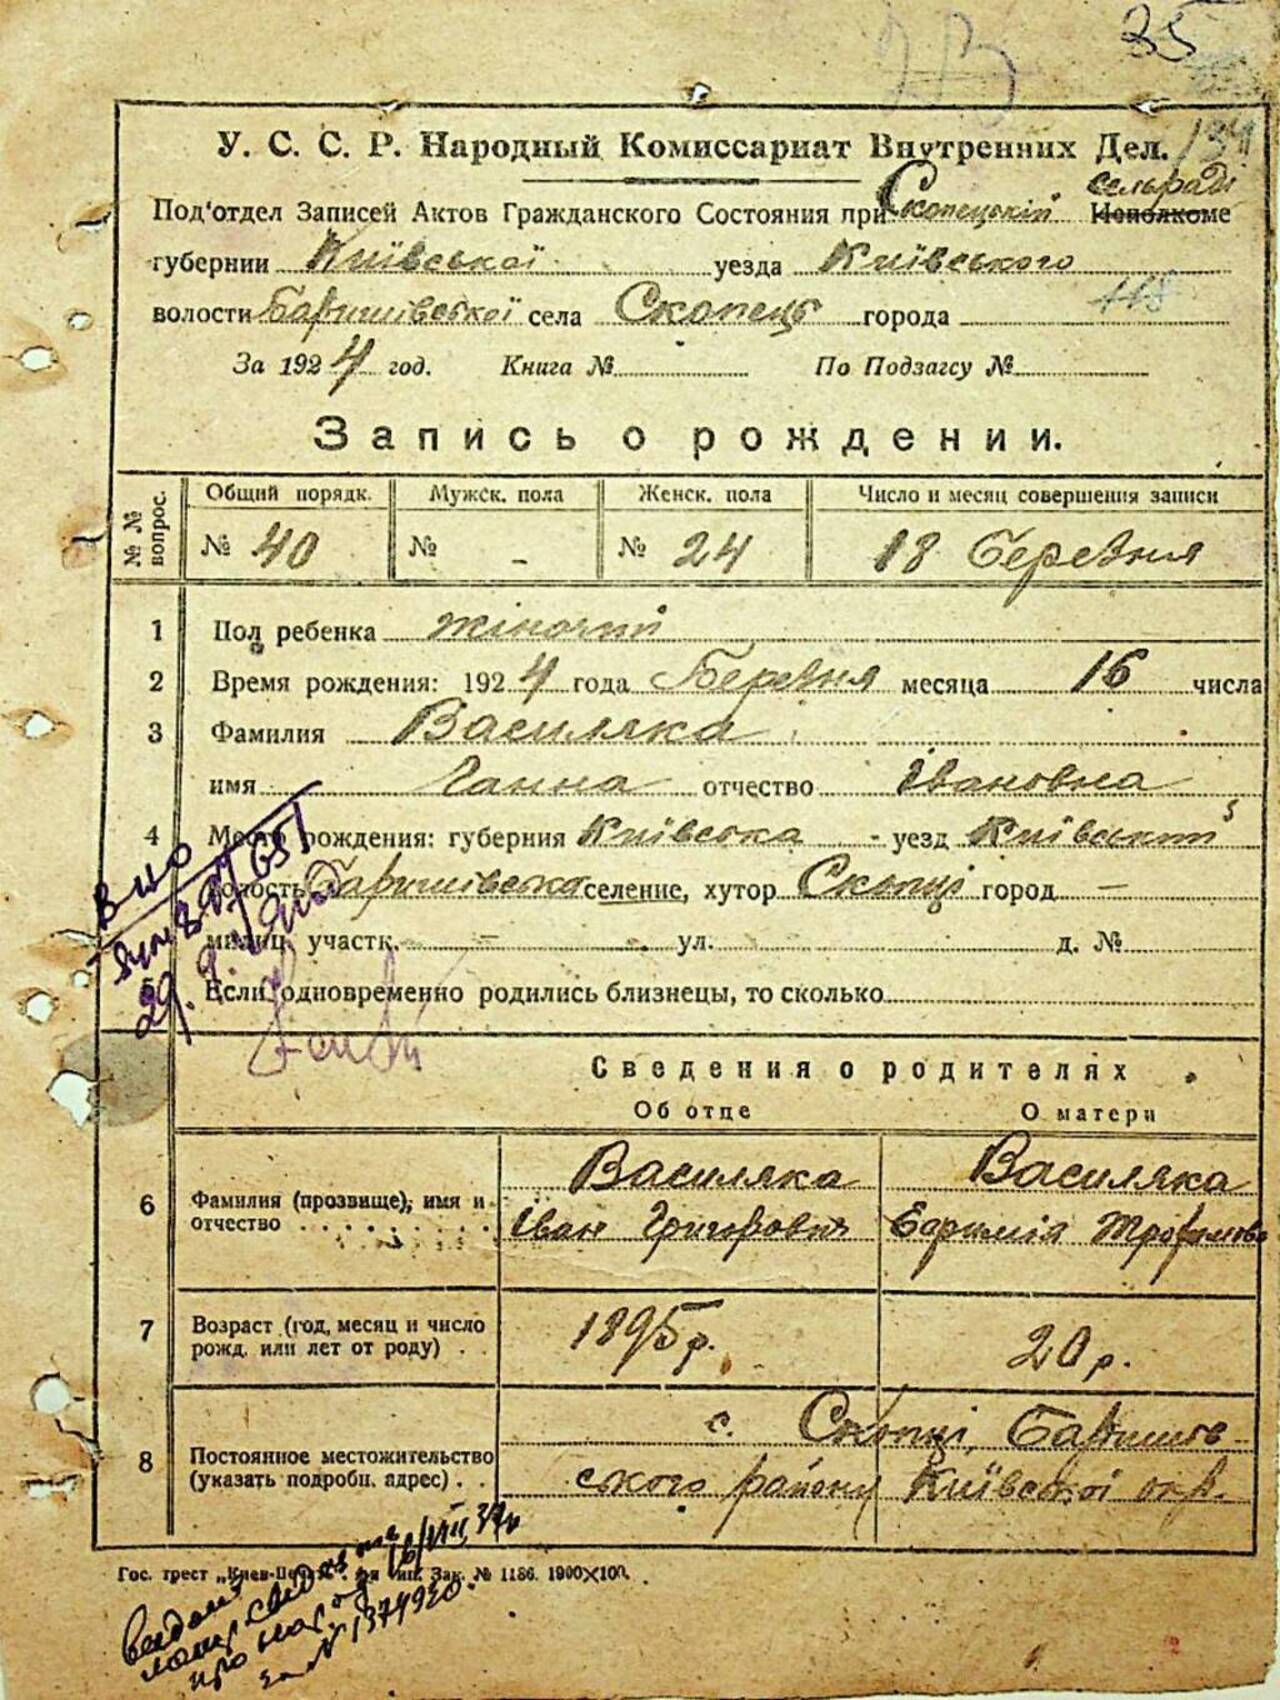 35
У. С. С. Р. Народный Комиссариат Внутренних Дел.
сельраді
Под'отдел Записей Актов Гражданского Состояния при Скопецькій Исполкоме
губернии Київської уезда Київського
волости Баришівської села Скопець города
За 1924 год. Книга № По Подзагсу №
Запись о рождении.
№ № вопрос. Общий порядк. Мужск. пола Женск. пола Число и месяц совершения записи
№ 40 № - № 24 18 Березня
1 Пол ребенка жіночий
2 Время рождения: 1924 года Березня месяца 16 числа
3 Фамилия Василяка
имя Ганна отчество Івановна
4 Место рождения: губерния Київська - уезд Київський
волость Баришівська селение, хутор Скопці город —
милиц. участк. ул. д. №
5 Если одновременно родились близнецы, то сколько
Сведения о родителях
Об отце О матери
Василяка Василяка
6 Фамилия (прозвище), имя и отчество Іван Григорович Ефимія Трофимов
7 Возраст (год, месяц и число рожд. или лет от роду) 1895 р. 20 р.
с. Скопці, Баришов-
8 Постоянное местожительство (указать подробн. адрес) ського району Київської окр.
Гос. трест „Киев-Печать“. Зак. № 1186. 1900×100.
16/VIII 37р
про нар.
за № 1374920.